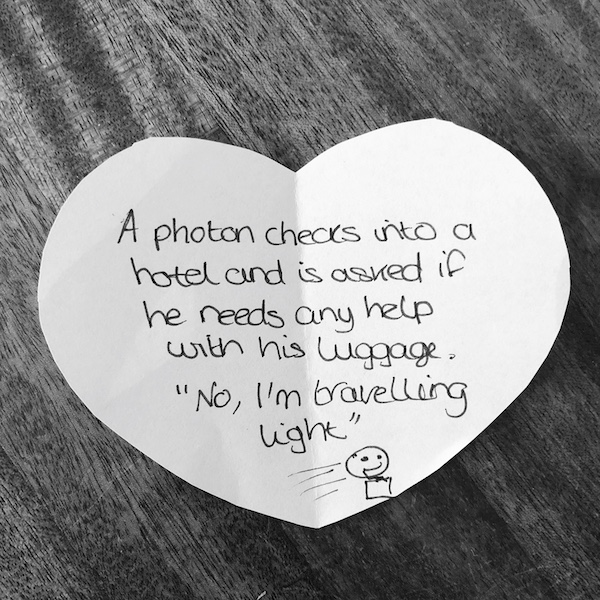 A photon checks into a
hotel and is asked if
he needs any help
with his luggage.
"No, I'm travelling
light"